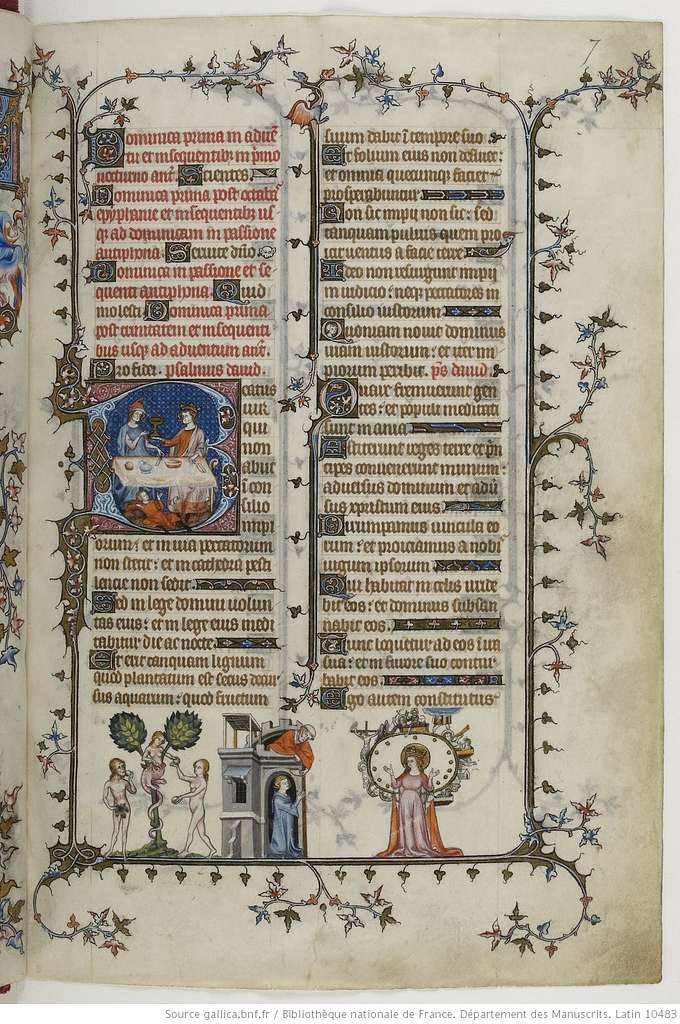 7
Dominica prima in aduē
tu et in sequentibz in pmo
nocturno añt. Scientes
Dominica prima post octabas
epyphanie et in sequentibz us
q ad dominicam in passione
antiphona. Seruite dño
Dominica in passione et se
quenti antiphona. Quid
molesti. Dominica prima
post trinitatem et in sequenti
bus usqz ad aduentum añt.
Pro fidei. psalmus dauid.
Beatus
uir
qui
non
abiit
ī con
silio
impi
orum: et in uia peccatorum
non stetit: et in cathedra pesti
lencie non sedit.
Sed in lege domini uolun
tas eius: et in lege eius medi
tabitur die ac nocte.
Et erit tanquam lignum
quod plantatum est secus decur
sus aquarum: quod fructum
suum dabit ī tempore suo.
Et folium eius non defluet:
et omnia quecunqz faciet
prosperabuntur.
Non sic impii non sic: sed
tanquam puluis quem pro
icit uentus a facie terre.
Ideo non resurgunt impii
in iudicio: neqz peccatores in
consilio iustorum.
Quoniam nouit dominus
uiam iustorum: et iter im
piorum peribit. p̄s dauid.
Quare fremuerunt gen
tes: et populi meditati
sunt inania.
Astiterunt reges terre et pn
cipes conuenerunt in unum:
aduersus dominum et aduer
sus xpristum eius.
Dirumpamus uincula eo
rum: et proiciamus a nobis
iugum ipsorum.
Qui habitat in celis irride
bit eos: et dominus subsan
nabit eos.
Tunc loquetur ad eos ī ira
sua: et in furore suo contur
babit eos.
Ego autem constitutus
Source gallica.bnf.fr / Bibliothèque nationale de France. Département des Manuscrits. Latin 10483